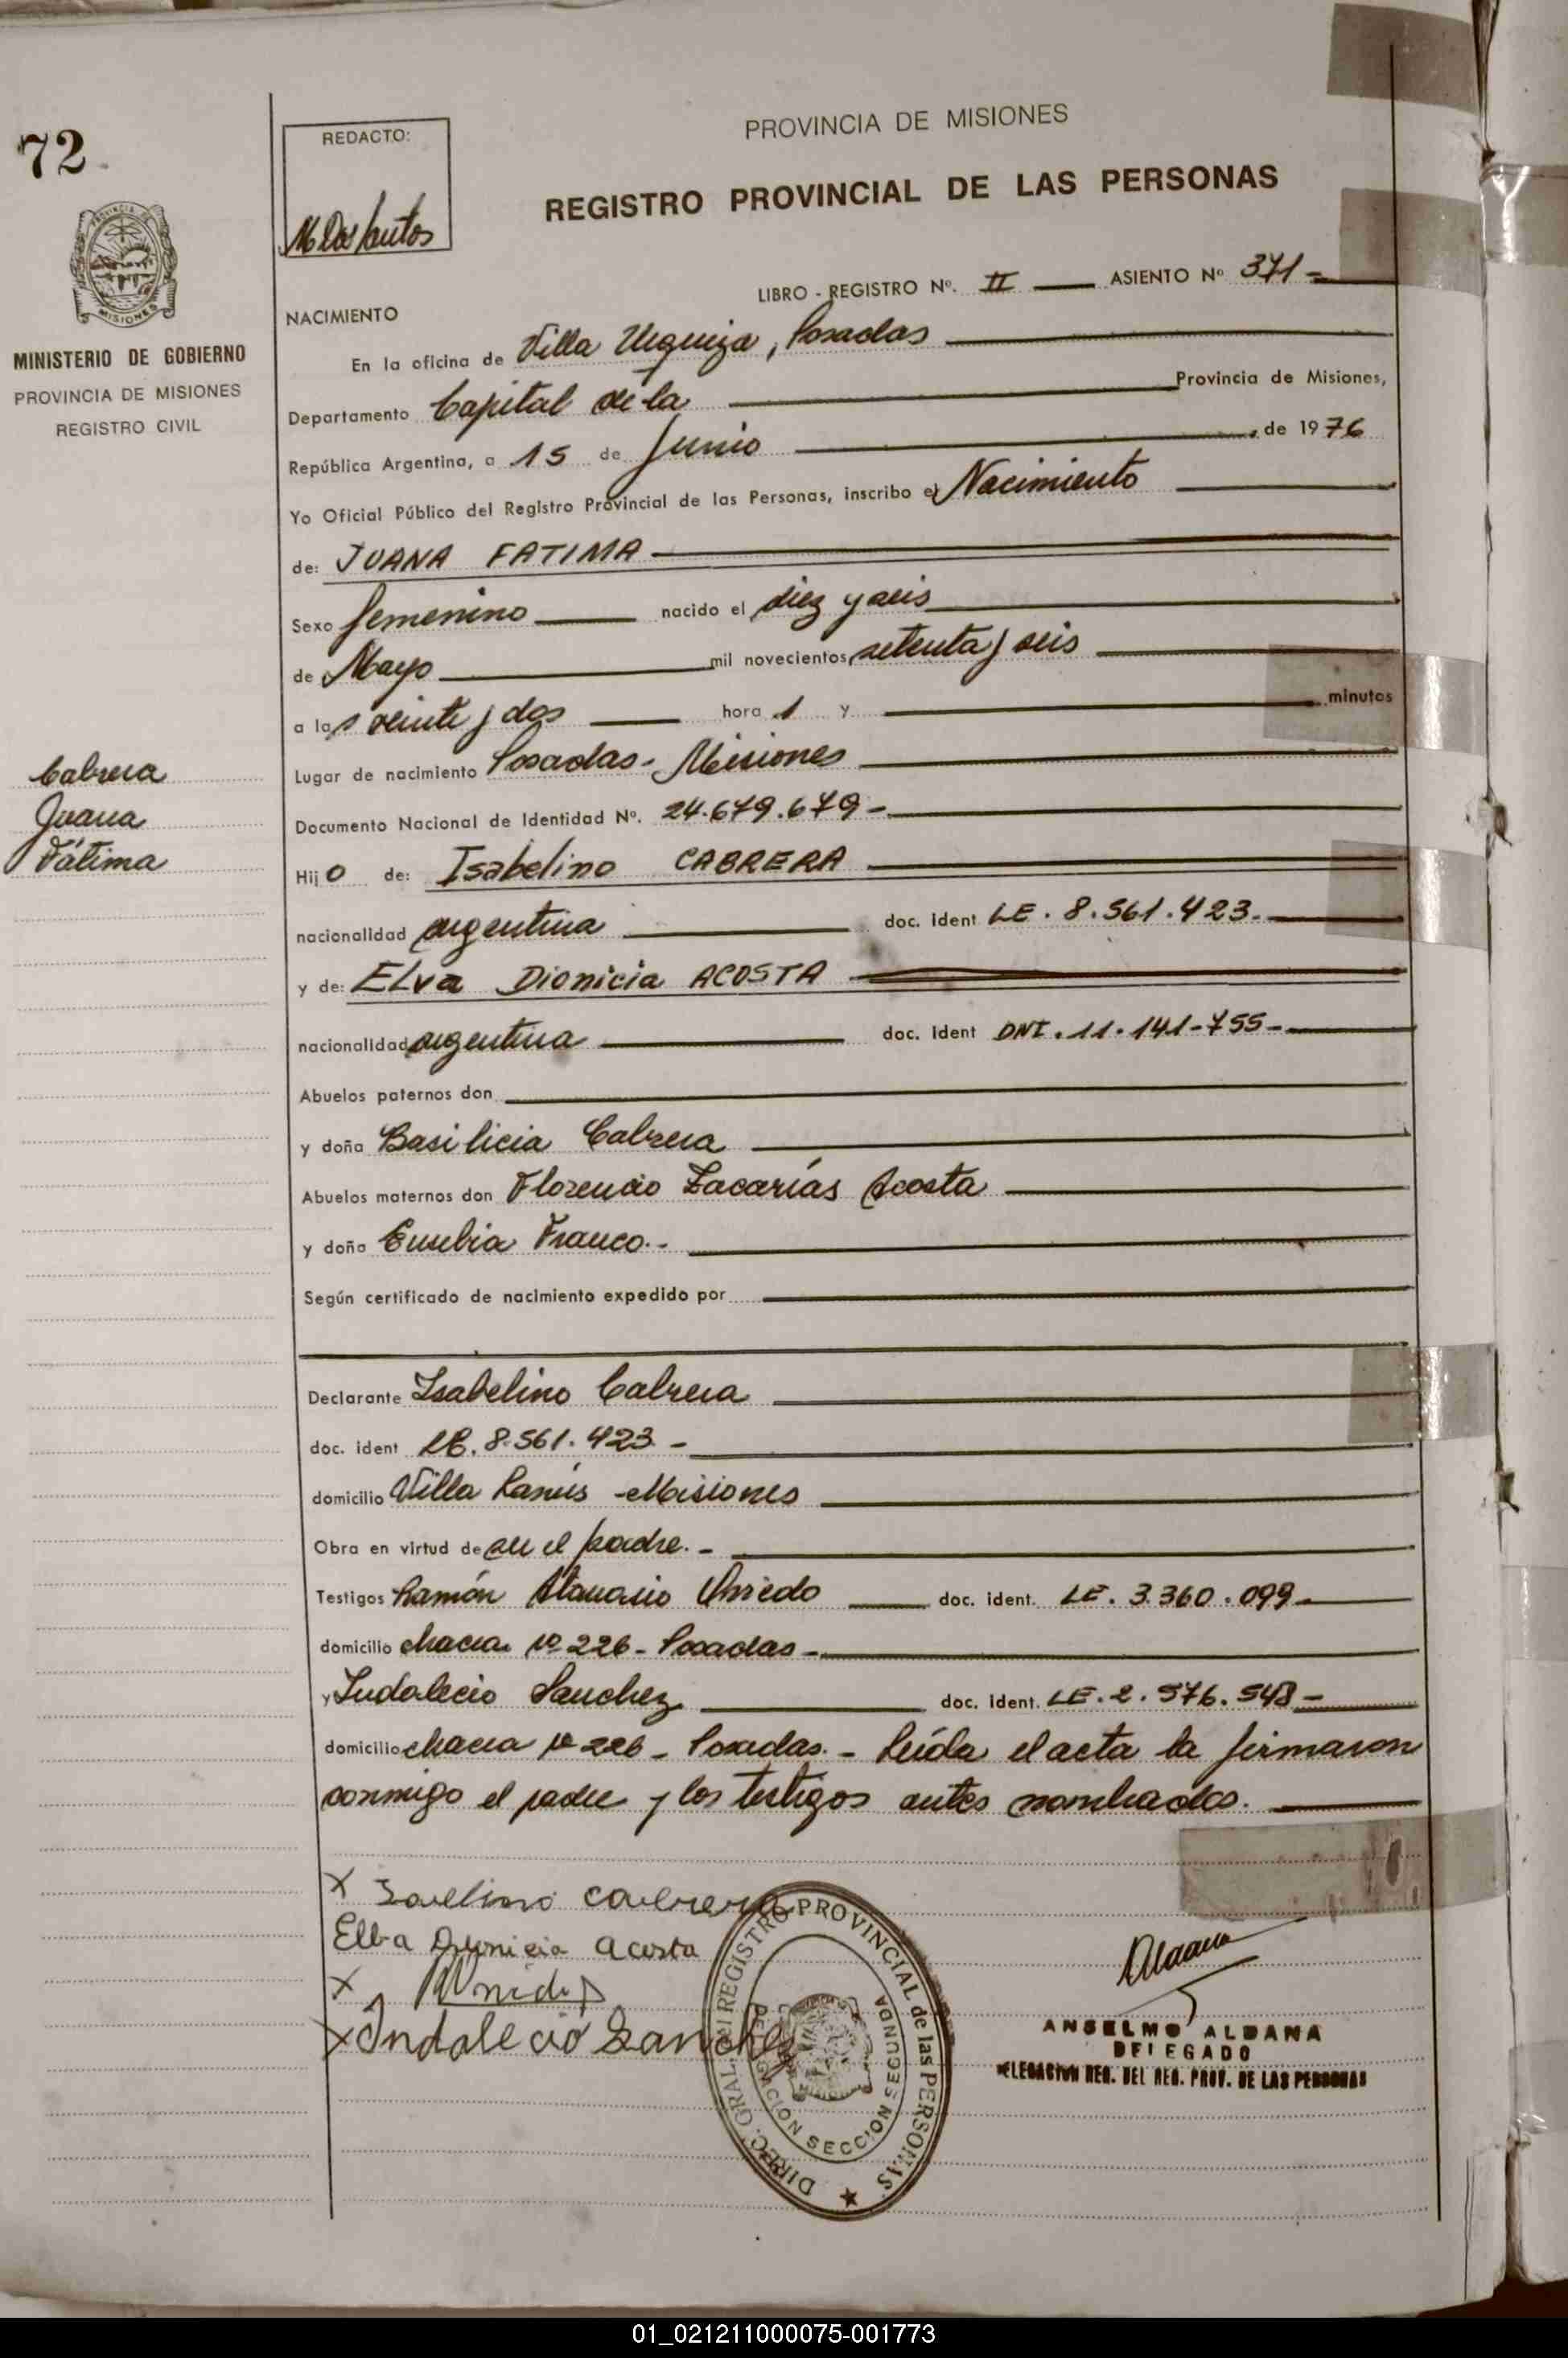 72
PROVINCIA DE MISIONES
MINISTERIO DE GOBIERNO
PROVINCIA DE MISIONES
REGISTRO CIVIL
Cabrera
Juana
Fátima
REDACTO:
PROVINCIA DE MISIONES
REGISTRO PROVINCIAL DE LAS PERSONAS
LIBRO - REGISTRO Nº. II ASIENTO Nº 371-
NACIMIENTO
En la oficina de Villa Urquiza, Posadas
Departamento Capital de la Provincia de Misiones,
República Argentina, a 15 de Junio de 1976
Yo Oficial Público del Registro Provincial de las Personas, inscribo el Nacimiento
de: JUANA FATIMA
Sexo femenino nacido el diez y seis
de Mayo mil novecientos setenta y seis
a las veinte y dos hora 1 y minutos
Lugar de nacimiento Posadas - Misiones
Documento Nacional de Identidad Nº. 24.679.679-
Hijo de: Isabelino CABRERA
nacionalidad argentina doc. ident LE. 8.561.423.-
y de: ELva Dionicia ACOSTA
nacionalidad argentina doc. Ident DNI. 11.141-755-
Abuelos paternos don
y doña Basilicia Cabrera
Abuelos maternos don Florencio Zacarías Acosta
y doña Eusebia Franco.-
Según certificado de nacimiento expedido por
Declarante Isabelino Cabrera
doc. ident LE. 8.561.423 -
domicilio Villa Lanús - Misiones
Obra en virtud de ser el padre. -
Testigos Ramón Atanasio doc. ident. LE. 3.360.099-
domicilio chacra Nº 226 - Posadas -
y Indalecio Sanchez doc. ident. LE. 2.576.548-
domicilio chacra Nº 226 - Posadas. - Leída el acta la firmaron
conmigo el padre y los testigos antes nombrados.
X cabrera
Elba Dyonicia acosta
X
X Indalecio Sanchez
DIREC. GRAL. del REGISTRO PROVINCIAL de las PERSONAS
DELEGACION SECCION SEGUNDA
ANSELMO ALDANA
DELEGADO
DELEGACION REG. DEL REG. PROV. DE LAS PERSONAS
01_021211000075-001773